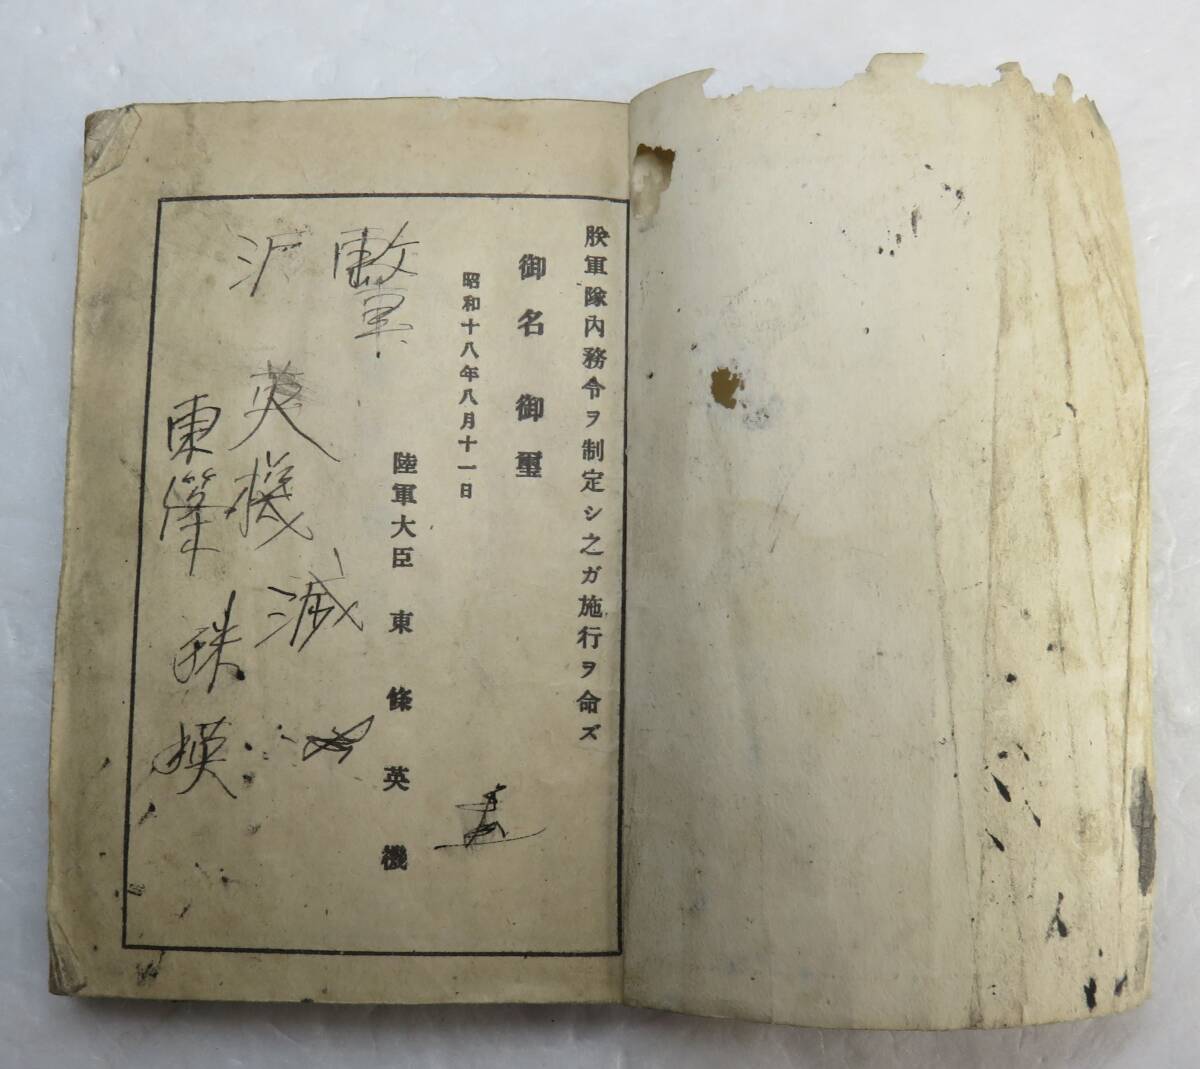 朕軍隊內務令ヲ制定シ之ガ施行ヲ命ズ
御名御璽
昭和十八年八月十一日
陸軍大臣 東條英機
軍
滅
英機
東
英